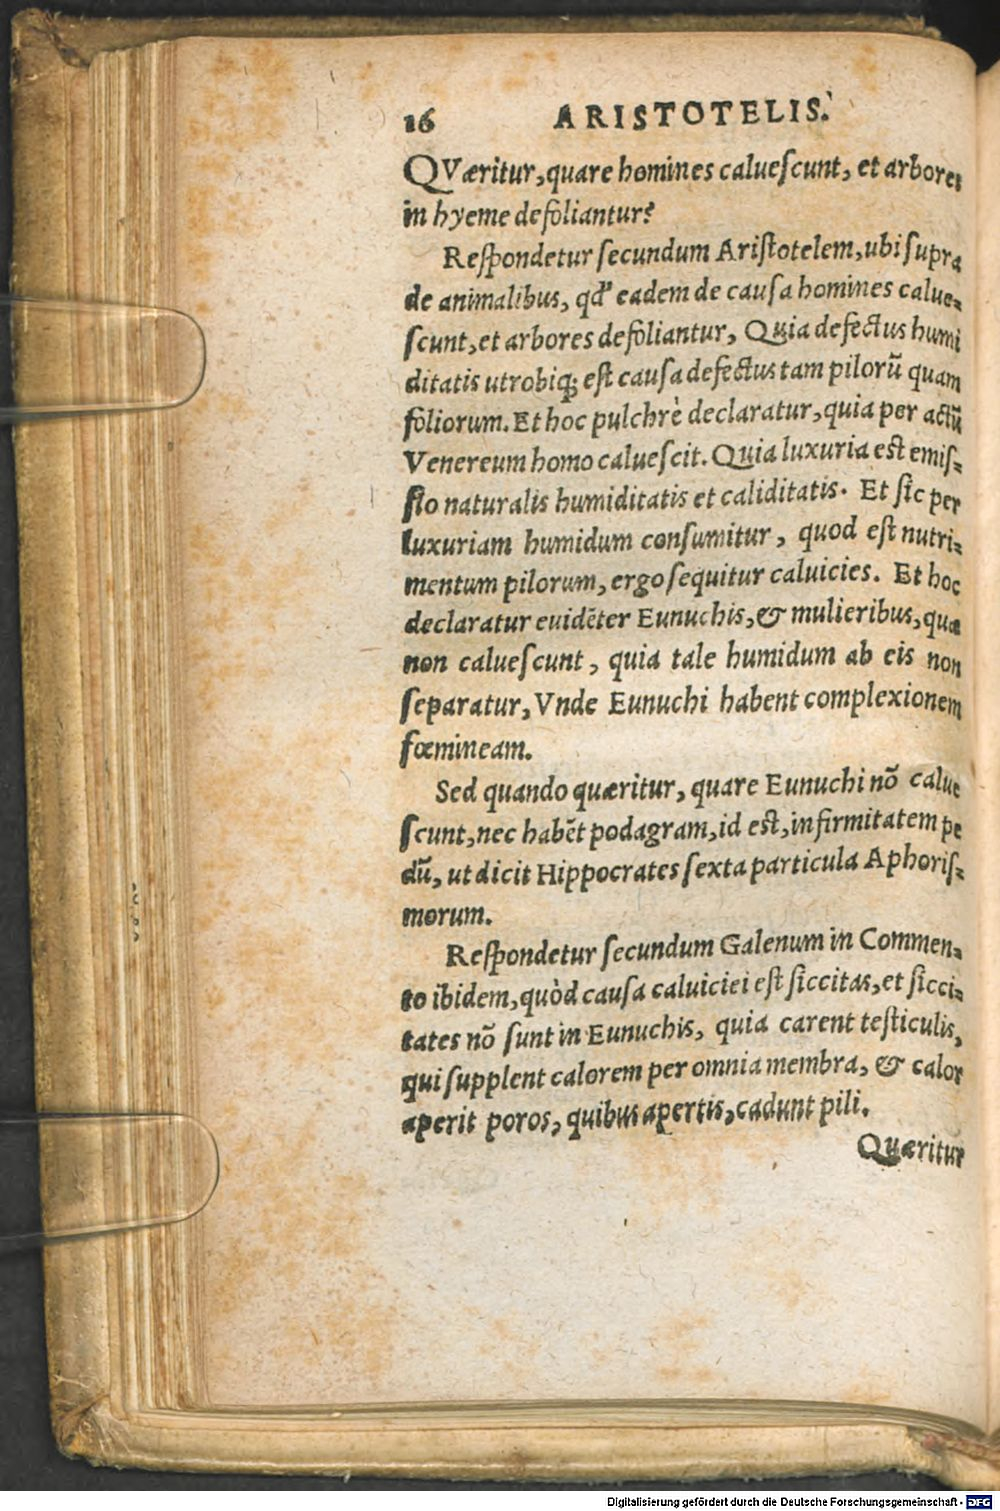 16 ARISTOTELIS.
QVæritur, quare homines caluescunt, et arbores
in hyeme defoliantur?
Respondetur secundum Aristotelem, ubi supra
de animalibus, qd' eadem de causa homines calue-
scunt, et arbores defoliantur, Quia defectus humi
ditatis utrobiq; est causa defectus tam pilorũ quam
foliorum. Et hoc pulchrè declaratur, quia per actũ
Venereum homo caluescit. Quia luxuria est emis-
sio naturalis humiditatis et caliditatis. Et sic per
luxuriam humidum consumitur, quod est nutri-
mentum pilorum, ergo sequitur caluicies. Et hoc
declaratur euidẽter Eunuchis, & mulieribus, quæ
non caluescunt, quia tale humidum ab eis non
separatur, Vnde Eunuchi habent complexionem
fœmineam.
Sed quando quæritur, quare Eunuchi nõ calue
scunt, nec habẽt podagram, id est, infirmitatem pe
dũ, ut dicit Hippocrates sexta particula Aphoris-
morum.
Respondetur secundum Galenum in Commen-
to ibidem, quòd causa caluiciei est siccitas, et sicci-
tates nõ sunt in Eunuchis, quia carent testiculis,
qui supplent calorem per omnia membra, & calor
aperit poros, quibus apertis, cadunt pili.
Quæritur
Digitalisierung gefördert durch die Deutsche Forschungsgemeinschaft - DFG